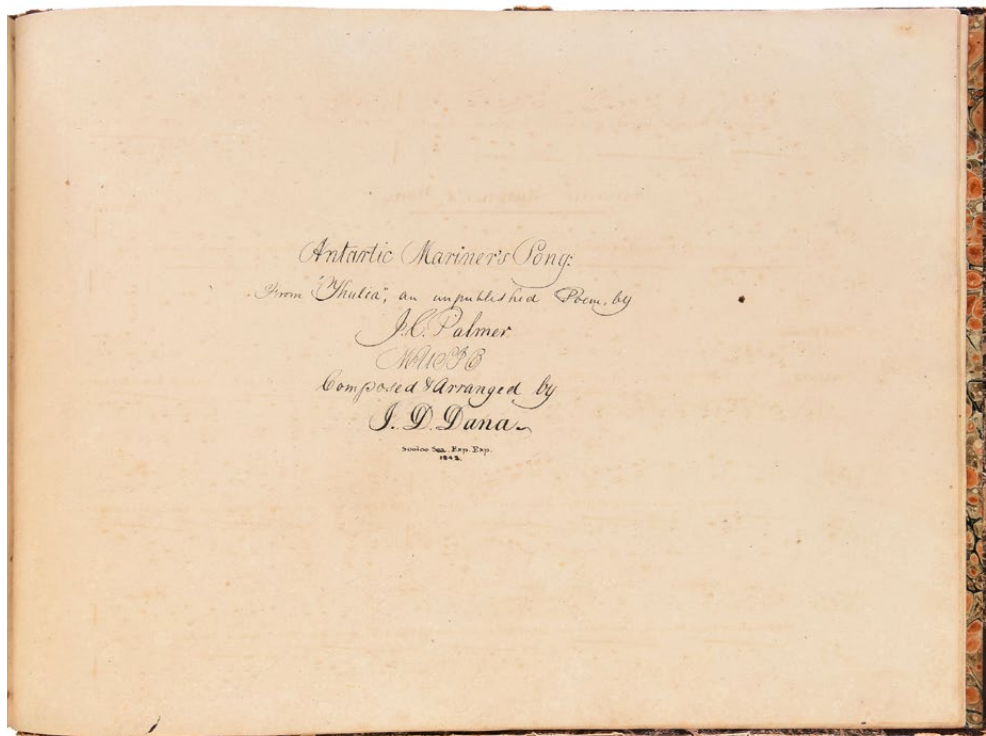 Antartic Mariner's Song:
From "Thulia", an unpublished Poem, by
J. C. Palmer
MUSIC
Composed & Arranged by
J. D. Dana.
Sooloo Sea. Exp. Exp.
1842.